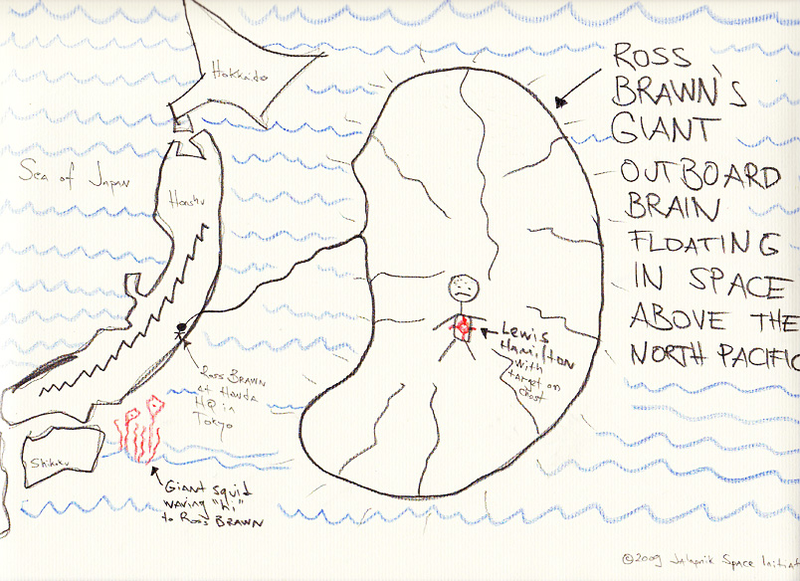 Hokkaido
Sea of Japan
Honshu
ROSS
BRAWN'S
GIANT
OUTBOARD
BRAIN
FLOATING
IN SPACE
ABOVE THE
NORTH PACIFIC
Lewis
Hamilton
with
target on
chest
ROSS BRAWN
at Honda
HQ in
Tokyo
Shikoku
Giant squid
waving "hi"
to ROSS BRAWN
©2009 Jalopnik Space Initiat